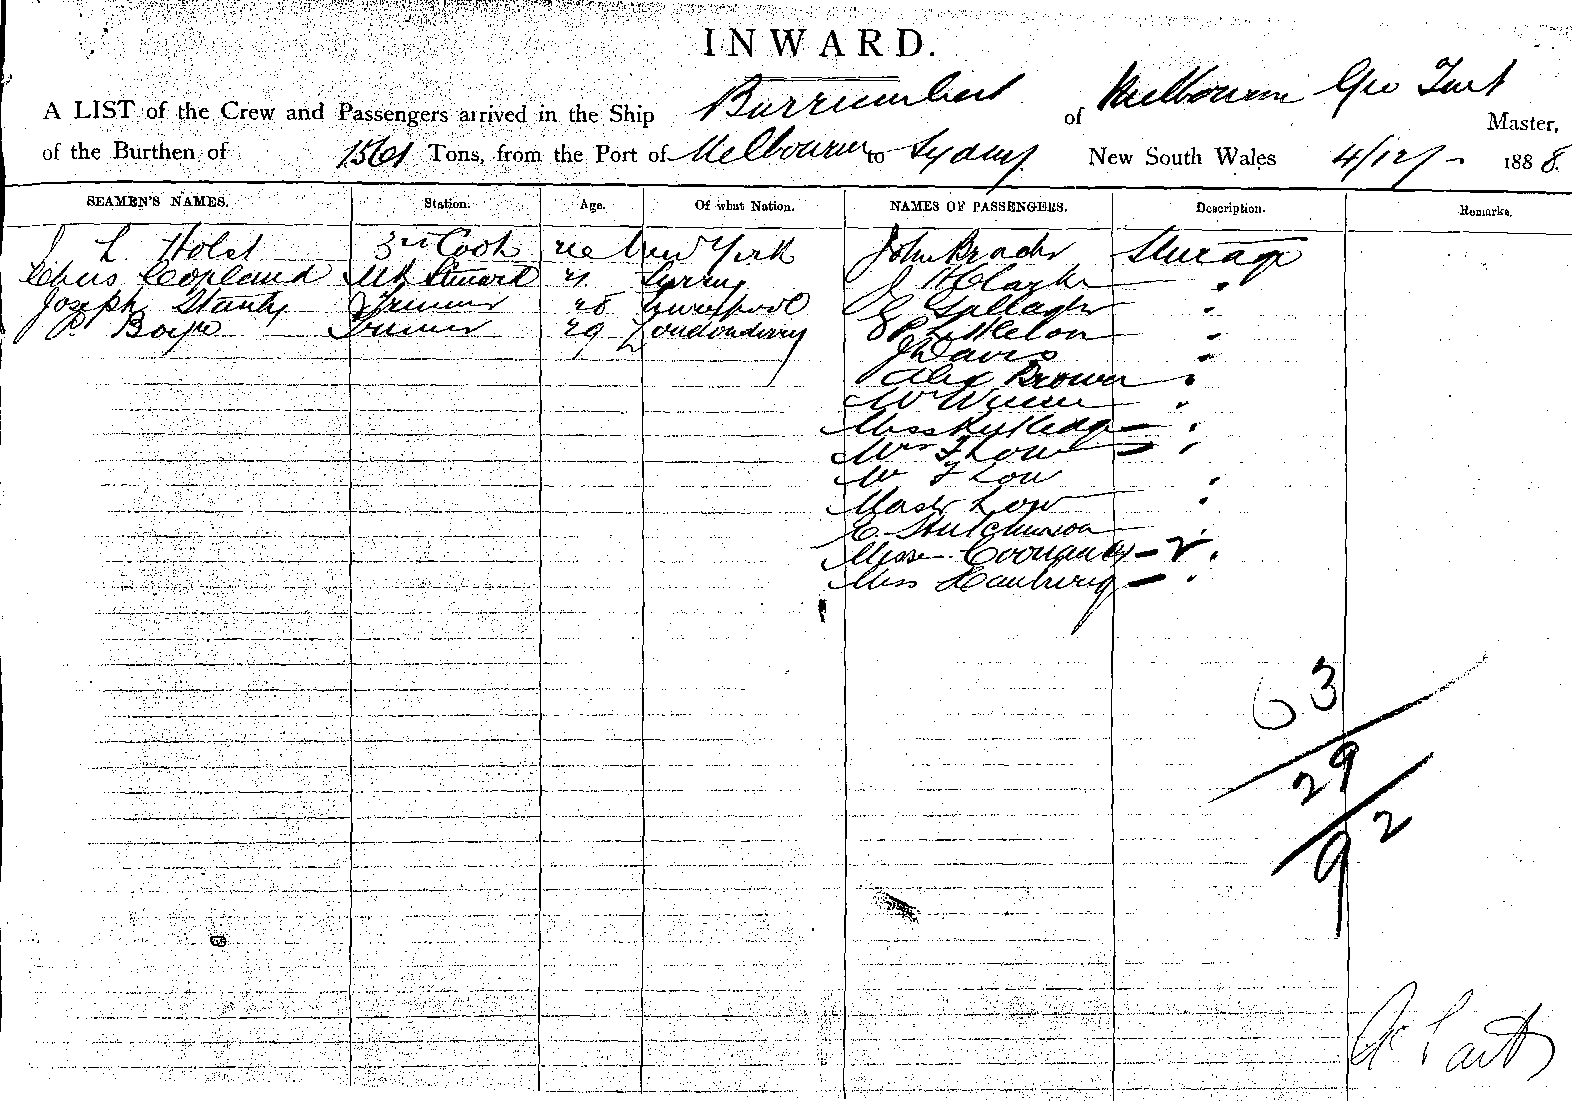 INWARD.
A LIST of the Crew and Passengers arrived in the Ship Burrumbeet of Melbourne Geo Tait Master,
of the Burthen of 1561 Tons, from the Port of Melbourne to Sydney New South Wales 4/12/- 1888.
SEAMEN'S NAMES. Station. Age. Of what Nation. NAMES OF PASSENGERS. Description. Remarks.
J L Holst 3rd Cook New York John Steerage
Chas Copland Steward 21 Surrey J H Clarke "
Joseph Trimmer 28 Liverpool Gallagher "
P Trimmer 29 Londonderry Littleton "
J Davis "
Alex Brown "
Mr "
Miss Rutledge - "
Mrs F Low - "
Mr F Low "
Mastr Low "
E. Hutchinson "
Misses - 2 "
Miss - "
63
29
92
Tait